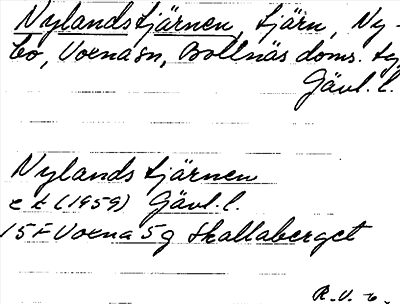 Nylandstjärnen, tjärn, Ny-
bo, Voxna sn, Bollnäs doms. tg
Gävl. l.
Nylandstjärnen
e k (1959) Gävl. l.
15 F Voxna 5g Skallaberget
R. V-6.